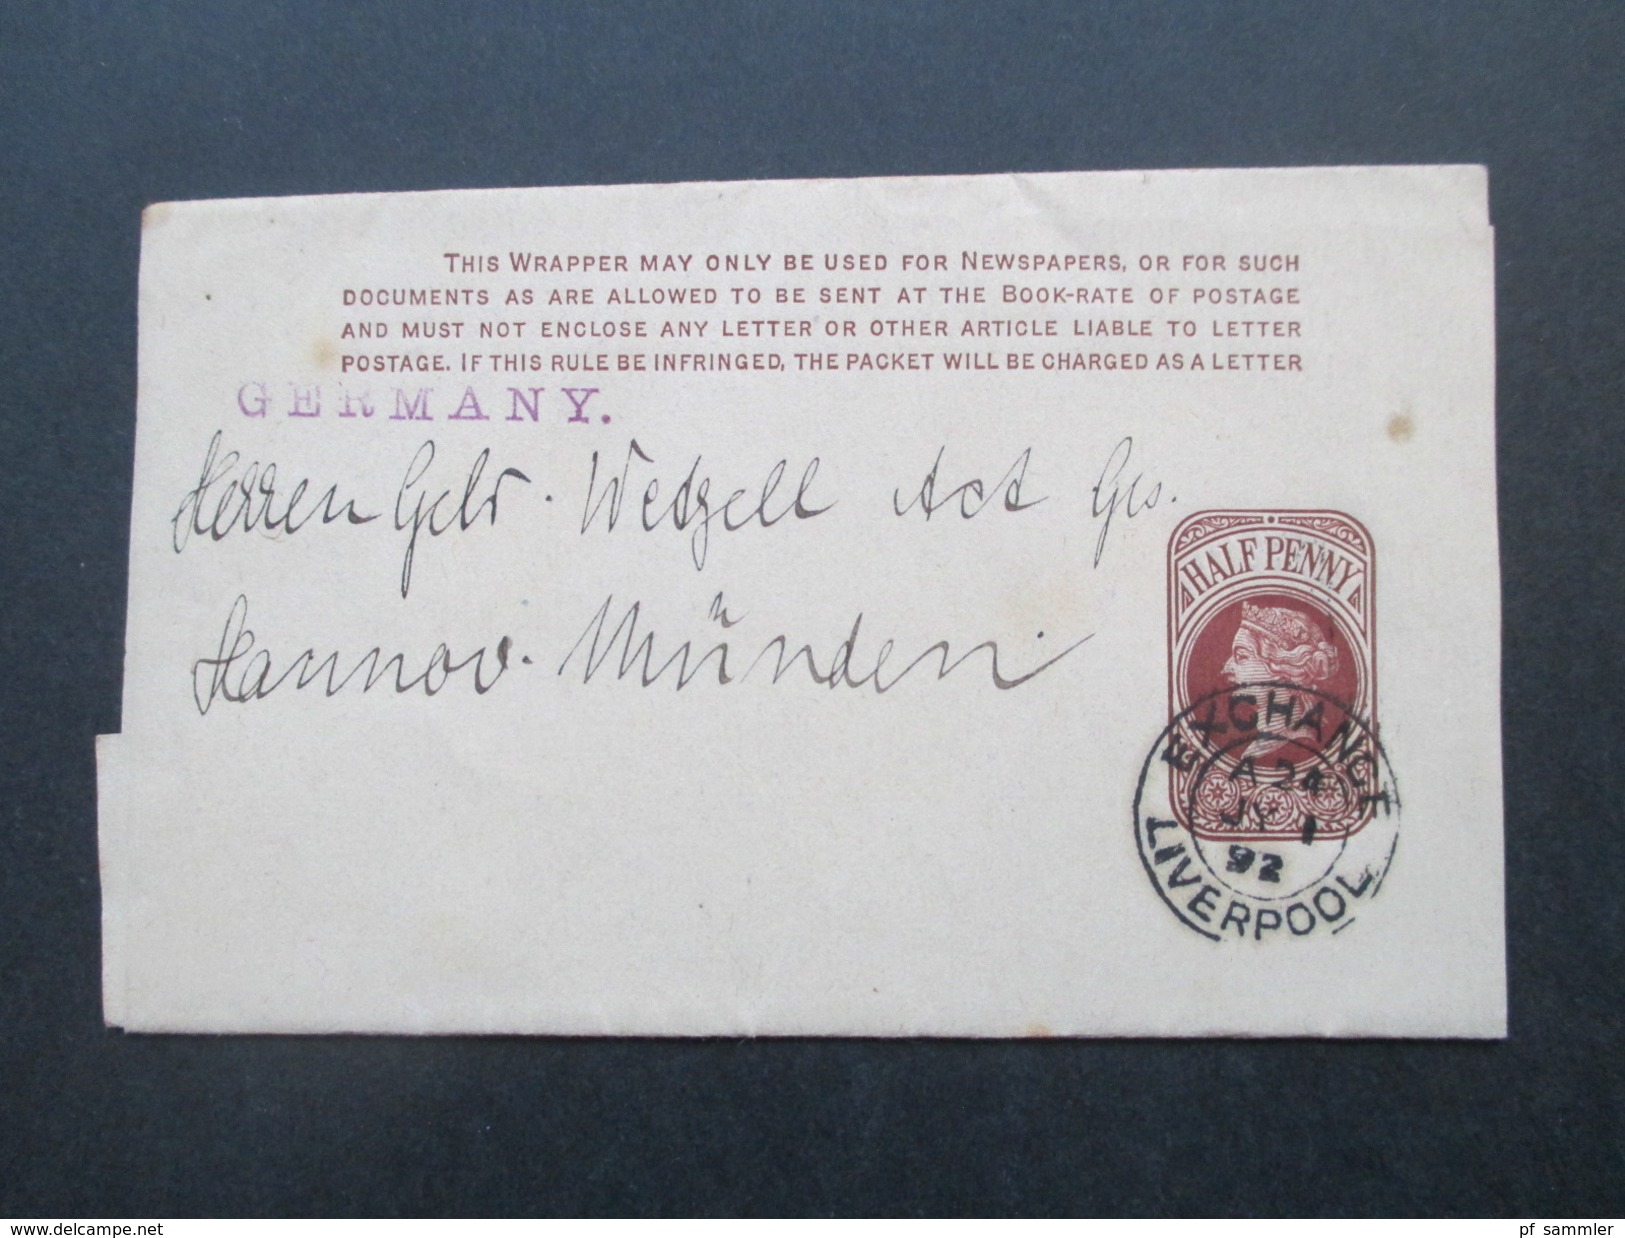 THIS WRAPPER MAY ONLY BE USED FOR NEWSPAPERS, OR FOR SUCH
DOCUMENTS AS ARE ALLOWED TO BE SENT AT THE BOOK-RATE OF POSTAGE
AND MUST NOT ENCLOSE ANY LETTER OR OTHER ARTICLE LIABLE TO LETTER
POSTAGE. IF THIS RULE BE INFRINGED, THE PACKET WILL BE CHARGED AS A LETTER
GERMANY.
Herren Gebr. Wetzell Act Ges.
Hannov. Münden.
HALF PENNY
EXCHANGE
A 24
JY 1
92
LIVERPOOL
© www.delcampe.net
pf_sammler